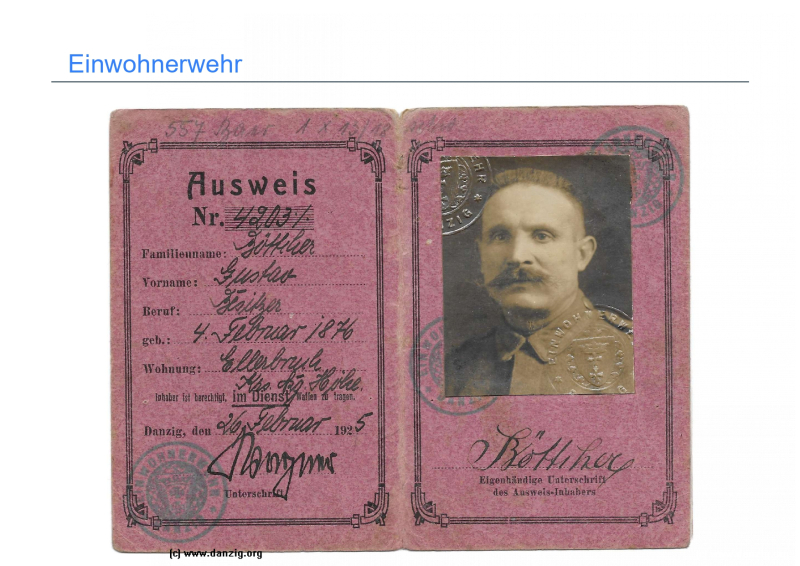 Einwohnerwehr
557
Ausweis
Nr. 42031
Familienname: Böttcher
Vorname: Gustav
Beruf: Besitzer
geb.: 4. Februar 1876
Wohnung: Ellerbruch
Krs. Dzg. Höhe.
Inhaber ist berechtigt, im Dienst Waffen zu tragen.
Danzig, den 26. Februar 1925
Wagner
Unterschrift
EINWOHNERWEHR
(c) www.danzig.org
EINWOHNERWEHR
Böttcher
Eigenhändige Unterschrift
des Ausweis-Inhabers